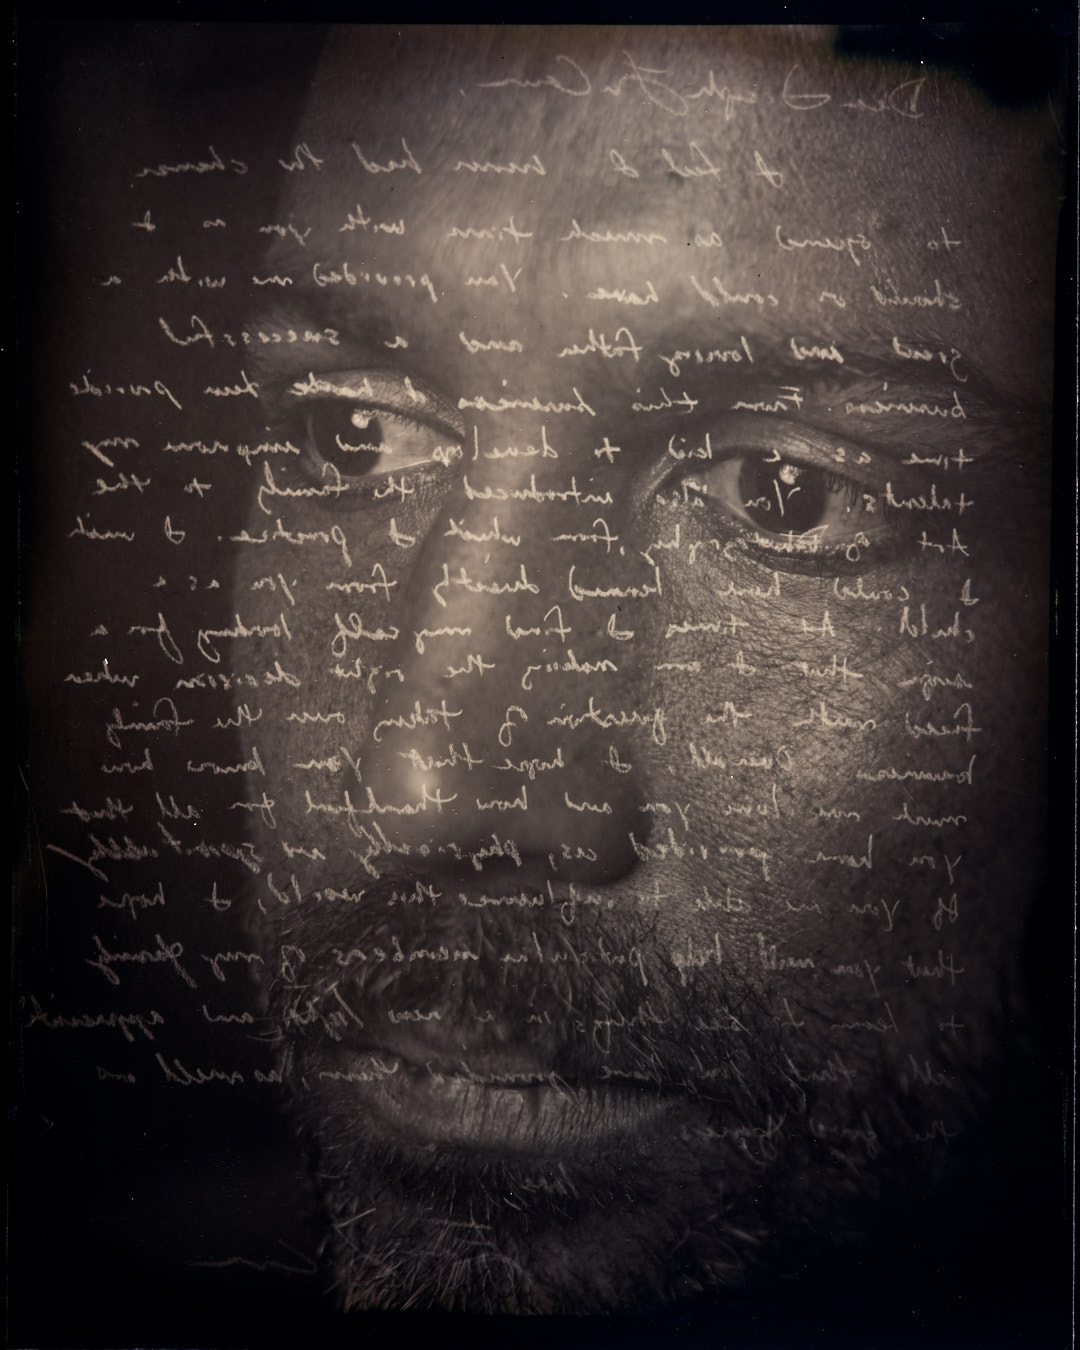 Dear Joseph
I feel I never had the chance
to spend as much time with you as I
should or could have. You provided me with a
great and loving father and a successful
business. From this business I made
time as a kid to develop and improve my
talents. You also introduced the family to the
Art of Photography, from which I practice. I wish
I could have learned directly from you as a
child. At times I find my self looking for a
sign that I am making the right decision when
faced with the question of taking over the family
business. Overall, I hope that you know how
much we love you and how thankful for all that
you have provided us, physically and spiritually
If you are able to influence this world, I hope
that you will help particular members of my family
to learn to see things in a new light and appreciate
all that you have provided them, as well as
the good times.